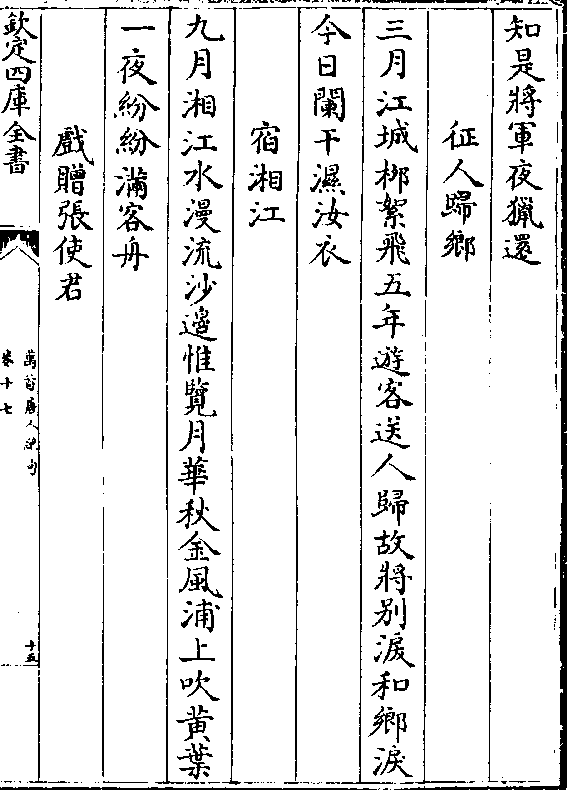 知是將軍夜獵還
征人歸鄉
三月江城栁絮飛五年遊客送人歸故將別淚和鄉淚
今日闌干濕汝衣
宿湘江
九月湘江水漫流沙邉惟覽月華秋金風浦上吹黄葉
一夜紛紛滿客舟
戲贈張使君
欽定四庫全書
萬首唐人絶句
卷十七
十五